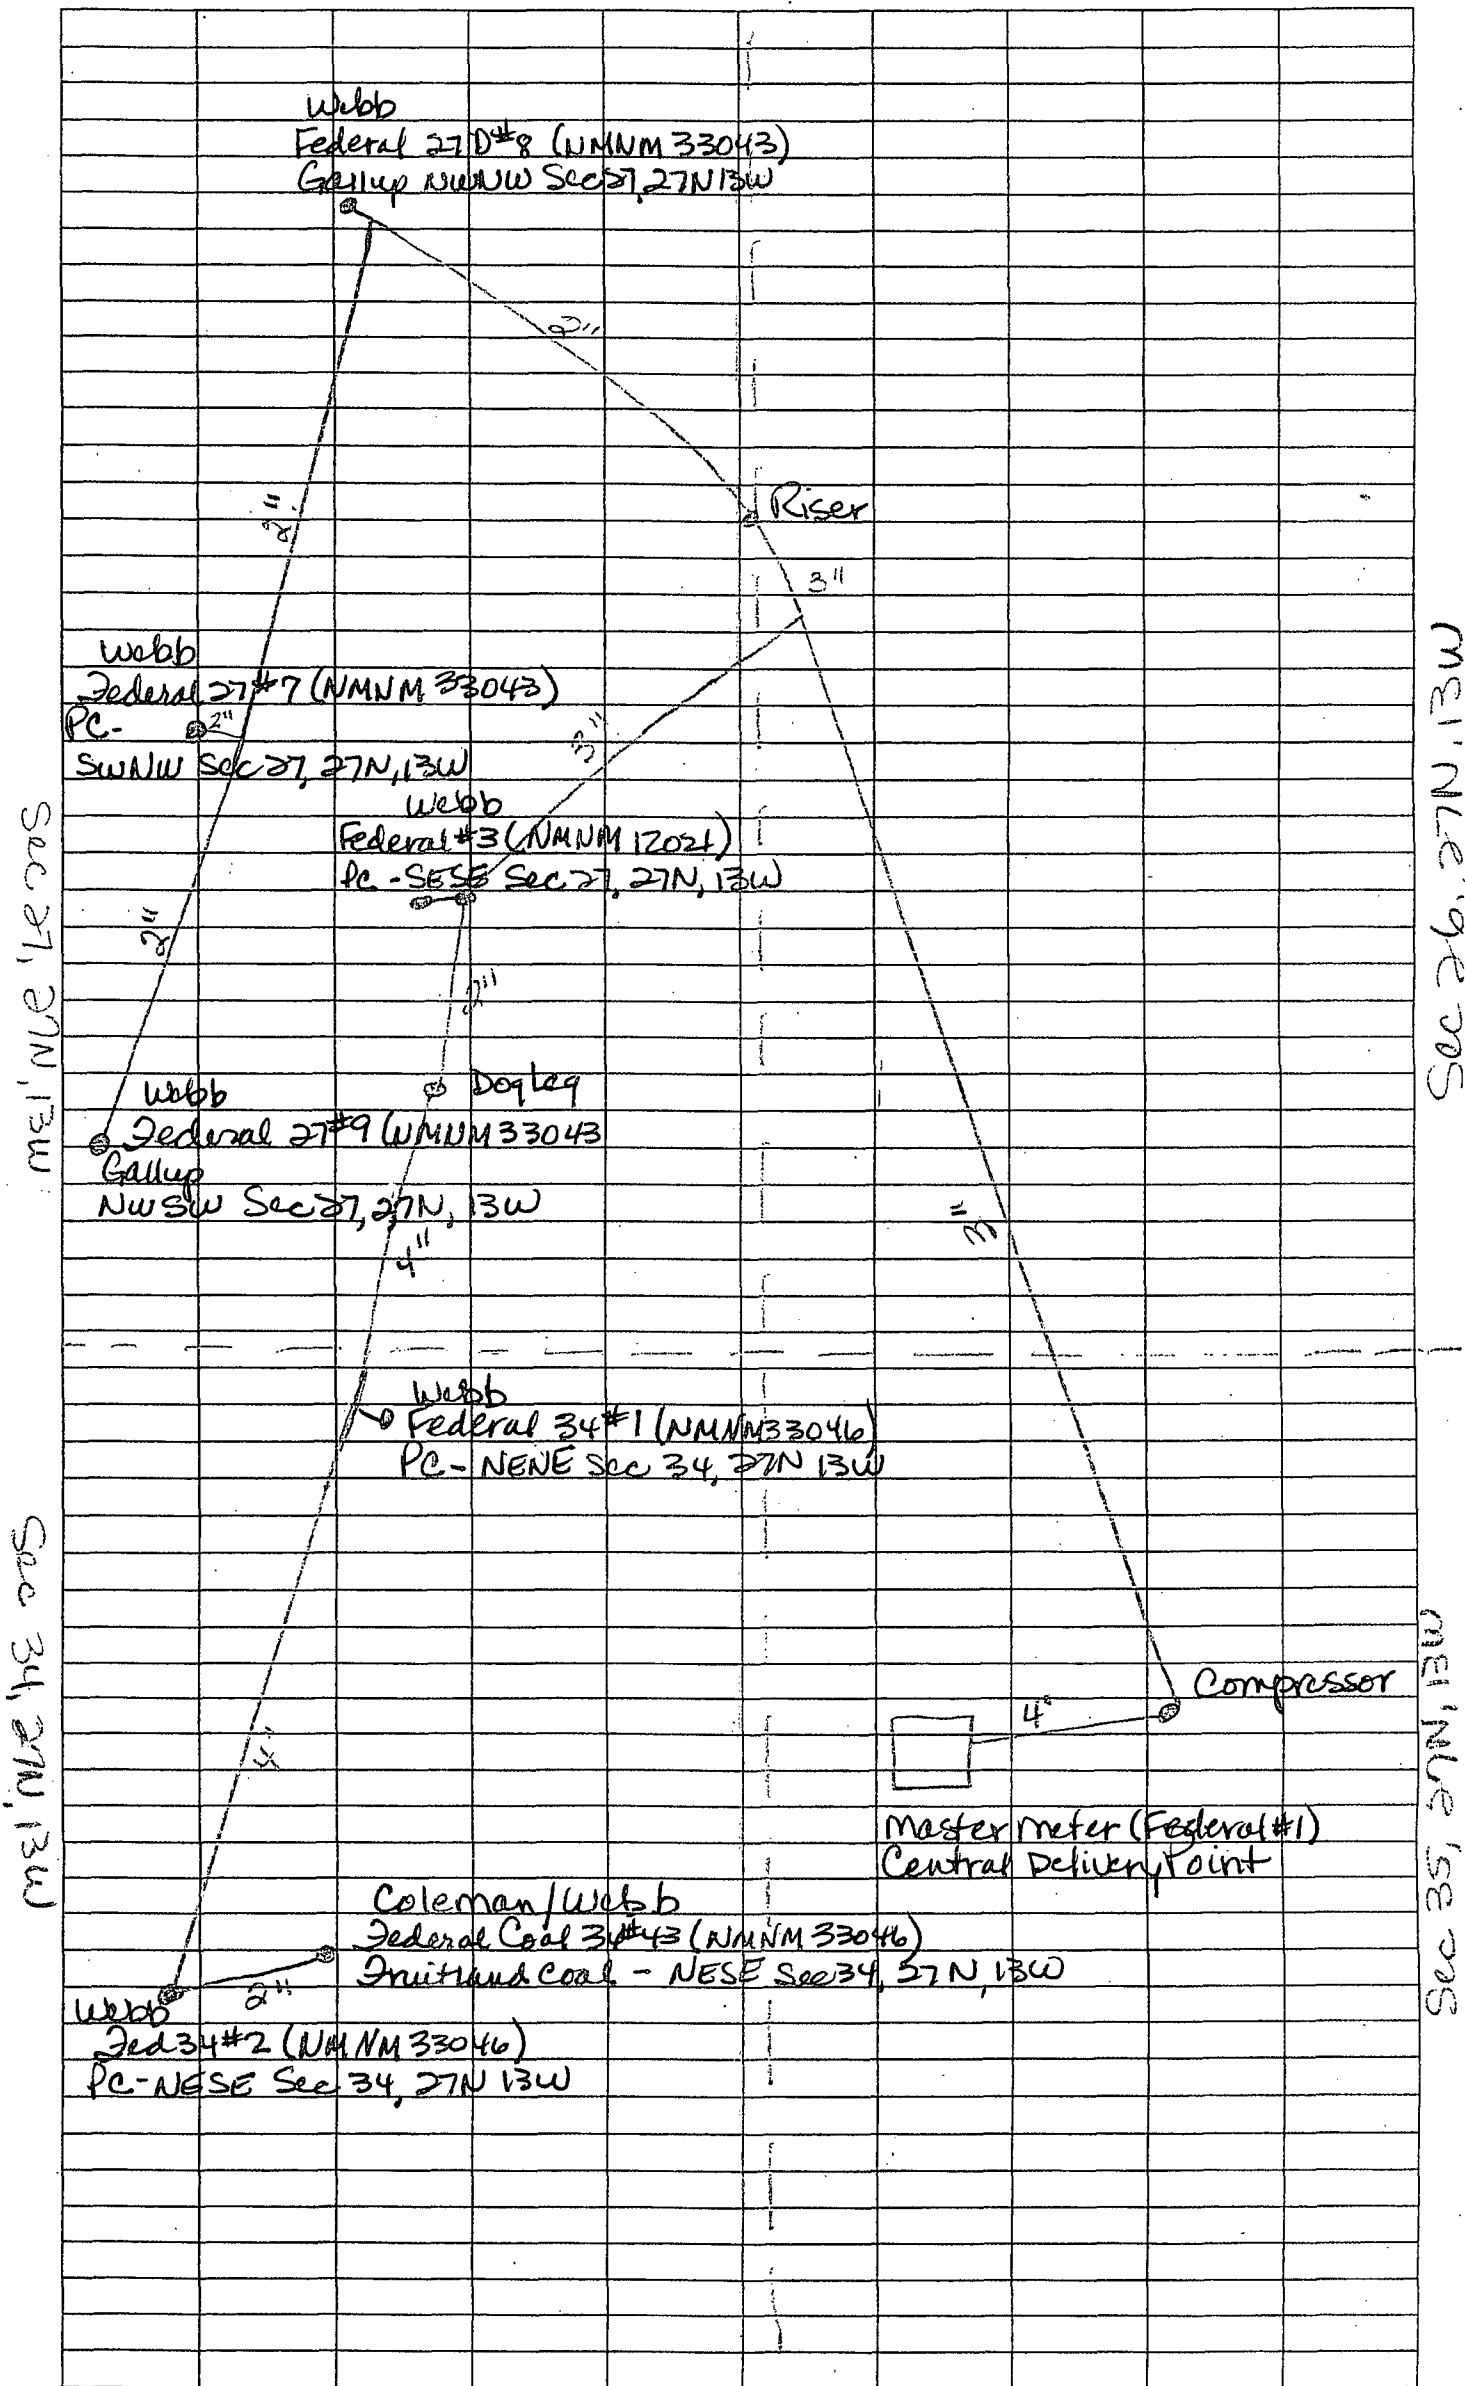 Webb
Federal 27D#8 (NMNM 33043)
Gallup NWNW Sec 27, 27N 13W
2"
Riser
3"
2"
Webb
Federal 27#7 (NMNM 33043)
PC-
2"
SWNW Sec 27, 27N, 13W
3"
Webb
Federal #3 (NMNM 12021)
PC - SESE Sec 27, 27N, 13W
2"
2"
Dogleg
Webb
Federal 27#9 (NMNM 33043
Gallup
NWSW Sec 27, 27N, 13W
4"
3"
Sec 27, 27N, 13W
Sec 26, 27N, 13W
Webb
Federal 34#1 (NMNM 33046)
PC - NENE Sec 34, 27N 13W
4"
Compressor
4"
Master meter (Federal #1)
Central Delivery Point
Coleman/Webb
Federal Coal 34#43 (NMNM 33046)
Fruitland Coal - NESE Sec 34, 27N, 13W
2"
Webb
Fed 34#2 (NMNM 33046)
PC-NESE Sec 34, 27N 13W
Sec 34, 27N, 13W
Sec 35, 27N, 13W